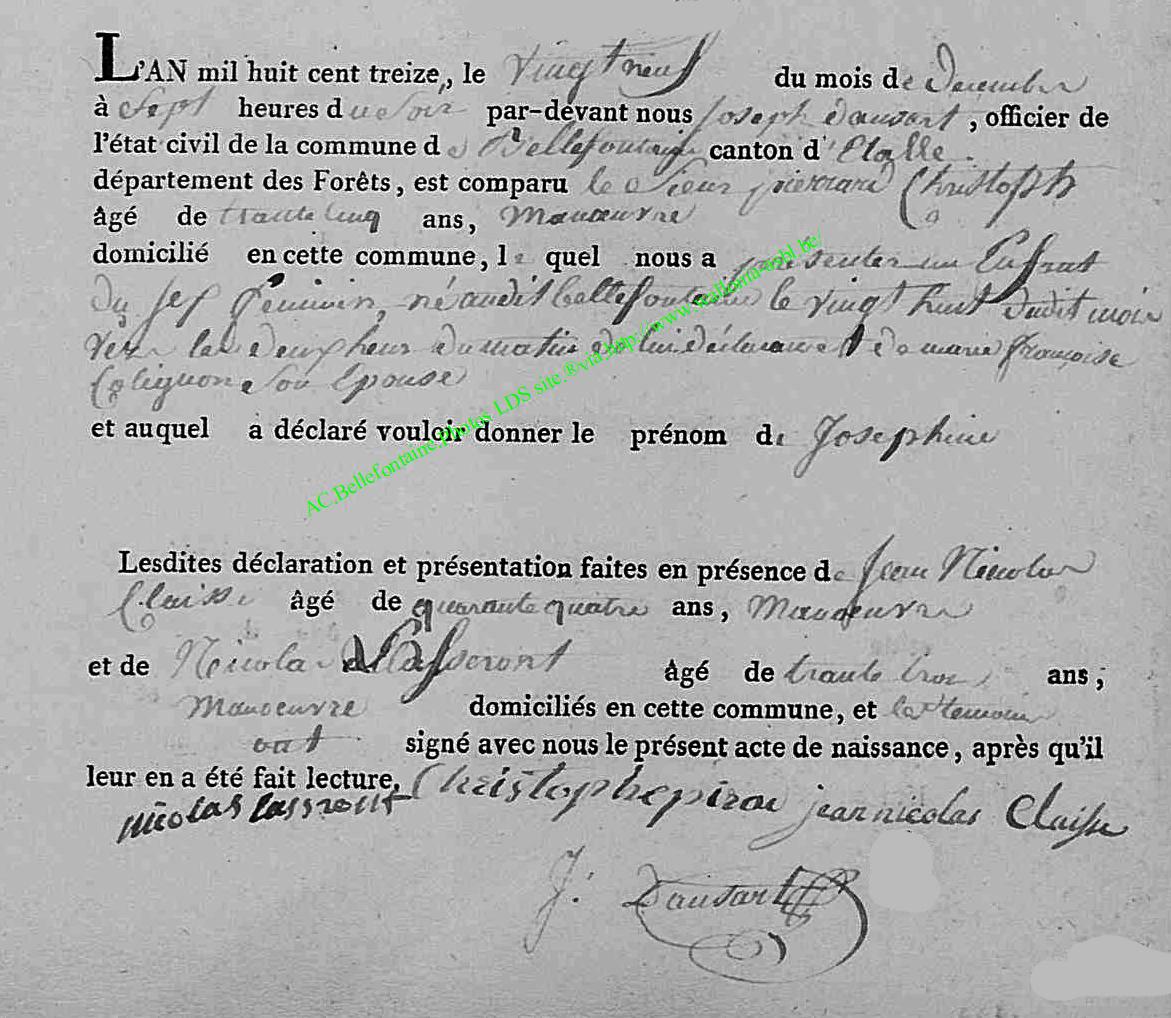 L'AN mil huit cent treize, le Vingt neuf du mois de Decembre
à Sept heures du Soir par-devant nous joseph dausart, officier de
l'état civil de la commune de Bellefontaine canton d'Etalle.
département des Forêts, est comparu le Sieur Christoph
âgé de trante cinq ans, Manœuvre
domicilié en cette commune, le quel nous a présenter un Enfant
Du féminin, né audit bellefontaine le vingt huit dudit mois
Vers les deux heur du matin de lui déclarant & de marie françoise
Colignon Son Epouse
et auquel a déclaré vouloir donner le prénom de Josephine
AC.Bellefontaine.Photos LDS site.®via.http://www.wallonia-asbl.be/
Lesdites déclaration et présentation faites en présence de Jean Nicolas
Claisse âgé de quarante quatre ans, Manoeuvre
et de Nicolas Lasseront âgé de trante trois ans;
Manoeuvre domiciliés en cette commune, et les temoins
ont signé avec nous le présent acte de naissance, après qu'il
leur en a été fait lecture, Christophe pirau jean nicolas Claisse
nicolas lassront
J: Dausart